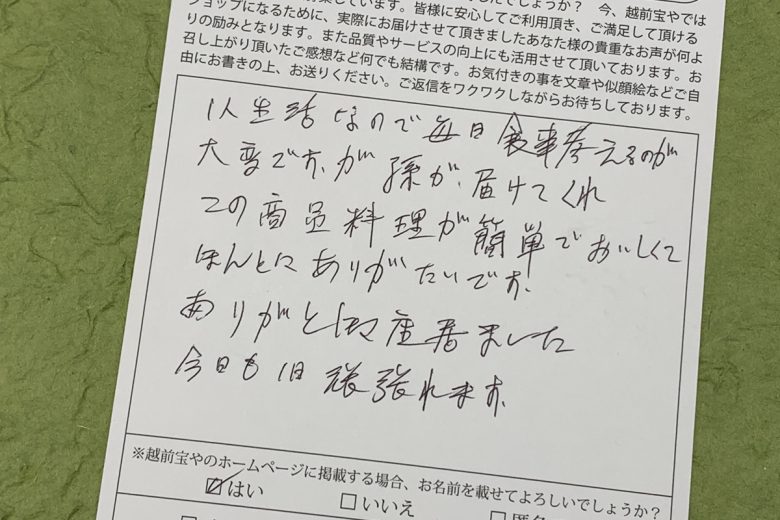 でしょうか？ 今、越前宝やでは
しています。皆様に安心してご利用頂き、ご満足して頂ける
ショップになるために、実際にお届けさせて頂きましたあなた様の貴重なお声が何よ
りの励みとなります。また品質やサービスの向上にも活用させて頂いております。お
召し上がり頂いたご感想など何でも結構です。お気付きの事を文章や似顔絵などご自
由にお書きの上、お送りください。ご返信をワクワクしながらお待ちしております。
1人生活なので毎日食事考えるのが
大変ですが孫が、届けてくれ
この商品料理が簡単でおいしくて
ほんとにありがたいです。
ありがと御座居ました
今日も1日頑張れます。
※越前宝やのホームページに掲載する場合、お名前を載せてよろしいでしょうか？
はい いいえ